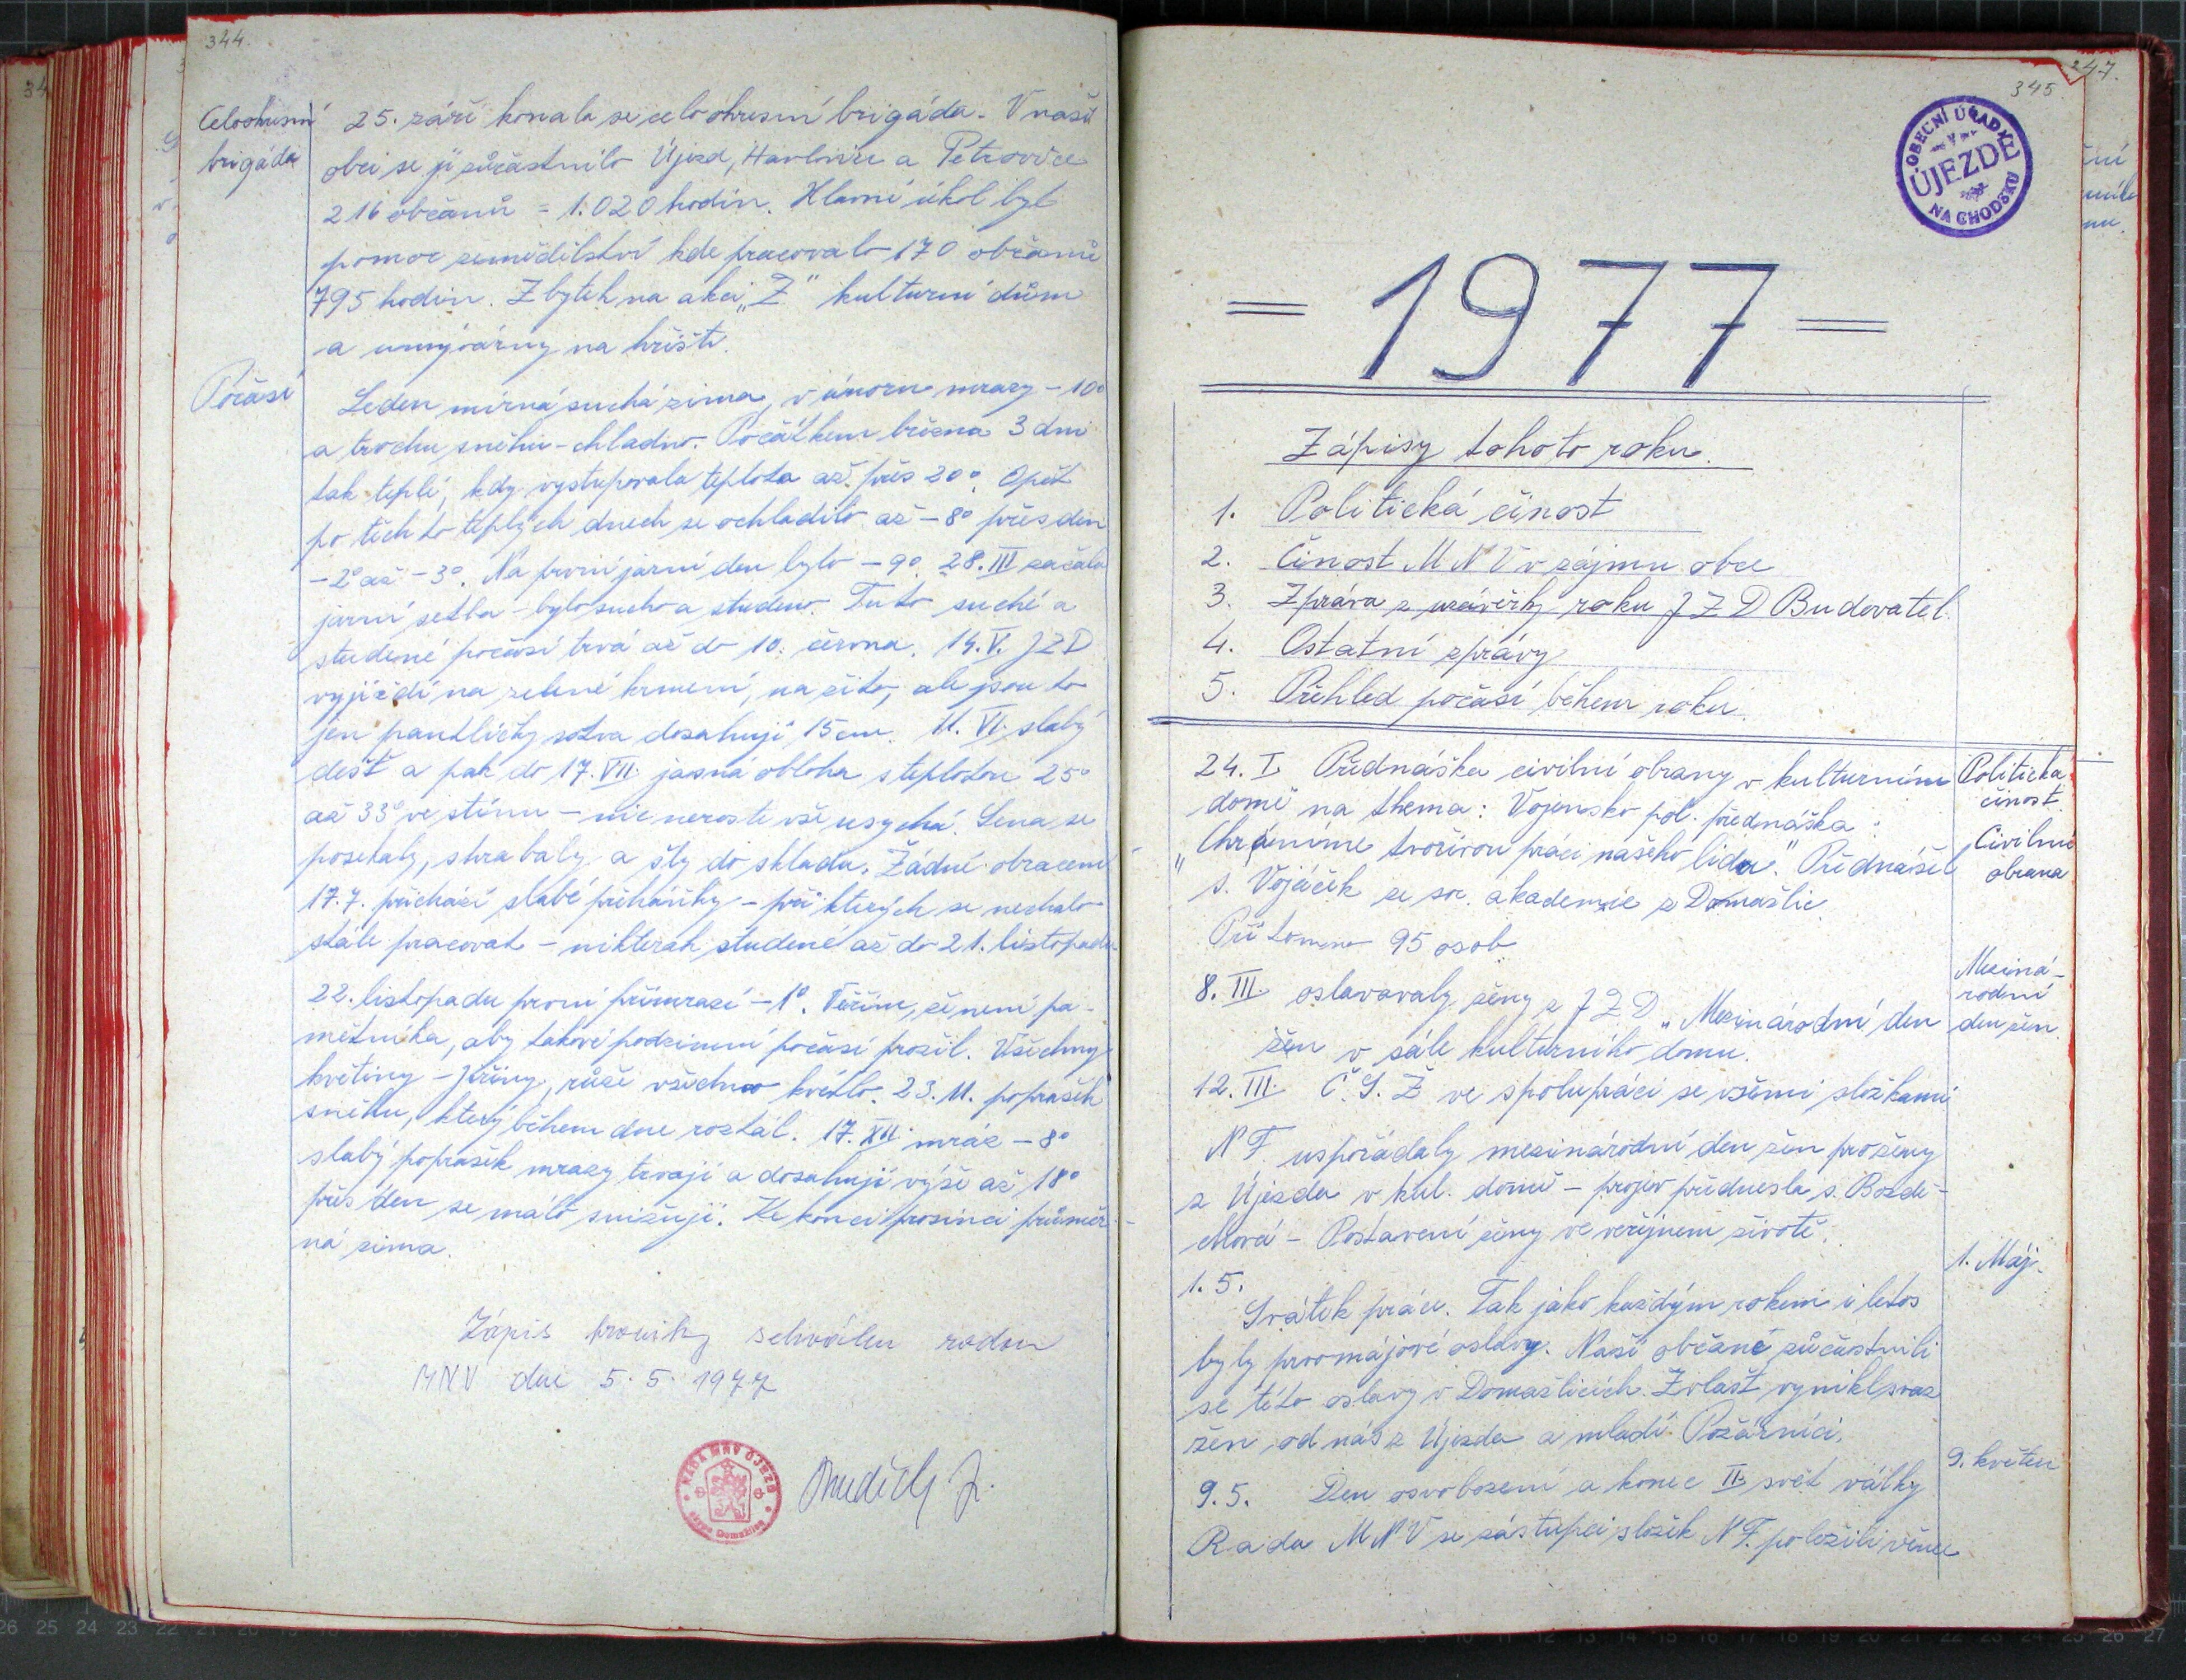 344.
Celookresní
brigáda
25. září konala se celookresní brigáda. V naší
obci se jí zůčastnilo Újezd, Havlovice a Petrovice
216 občanů = 1.020 hodin. Hlavní úkol byl
pomoc zemědělství kde pracovalo 170 občanů
795 hodin. Zbytek na akci „Z" kulturní dům
a umývárny na hřišti.
Počasí
Leden mírná suchá zima, v únoru mrazy -10°
a trochu sněhu - chladno. Počátkem března 3 dni
tak teplé, kdy vystupovala teplota až přes 20°. Opět
po těchto teplých dnech se ochladilo až -8° přes den
-2° až -3°. Na první jarní den bylo -9°. 28. III začala
jarní setba - bylo sucho a studeno. Toto suché a
studené počasí trvá až do 10. června. 14. V. JZD
vyjíždí na zelené krmení, na žito, ale jsou to
jen pantličky sotva dosahují 15 cm. 11. VI. slabý
dešť a pak do 17. VII. jasná obloha s teplotou 25°
až 33° ve stínu - nic neroste vše usychá. Sena se
posekaly, shrabaly a šly do skladu. Žádné obracení
17.7. přichází slabé přeháňky - při kterých se nechalo
stále pracovat - nikterak studené až do 21. listopadu.
22. listopadu první přimrazí -1°. Věřím, že není pa-
mětníka, aby takové podzimní počasí prožil. Všechny
květiny - Jiřiny, růže všechno kvetlo. 23. 11. poprašek
sněhu, který během dne roztál. 17. XII. mráz -8°
slabý poprašek mrazy trvají a dosahují výše až 18°
přes den se málo snižují. Ke konci prosinci průměr-
ná zima.
Zápis kroniky schválen radou
MNV dne 5. 5. 1977
RADA MNV ÚJEZD
okres Domažlice
247.
345
OBECNÍ ÚŘAD
V
ÚJEZDĚ
NA CHODSKU
= 1977 =
Zápisy tohoto roku.
1. Politická činost
2. Činost MNV v zájmu obce
3. Zpráva z uzávěrky roku JZD Budovatel.
4. Ostatní zprávy
5. Přehled počasí během roku.
24. I. Přednáška civilní obrany v kulturním
domě na thema: Vojensko pol. přednáška:
„Chráníme tvořivou práci našeho lidu." Přednášel
s. Vojáček ze soc. akademie z Domažlic.
Přítomno 95 osob
Politická
činost.
Civilní
obrana
8. III. oslavovaly ženy z JZD „Mezinárodní den
žen v sále kulturního domu.
Meziná-
rodní
den žen.
12. III. Č.S.Ž ve spolupráci se všemi složkami
N F. uspořádaly mezinárodní den žen pro ženy
z Újezda v kul. domě - projev přednesla s. Bozdě-
chová - Postavení ženy ve veřejnem životě.
1. 5.
1. Máj.
Svátek práce. Tak jako každým rokem i letos
byly prvomájové oslavy. Naši občané zůčastnili
se této oslavy v Domažlicích. Zvlašť vynikl svaz
žen od nás z Újezda a mladí Požárníci.
9. květen
9. 5. Den osvobození a konec II. svět války
Rada MNV se zástupci složek N F. položili věnce